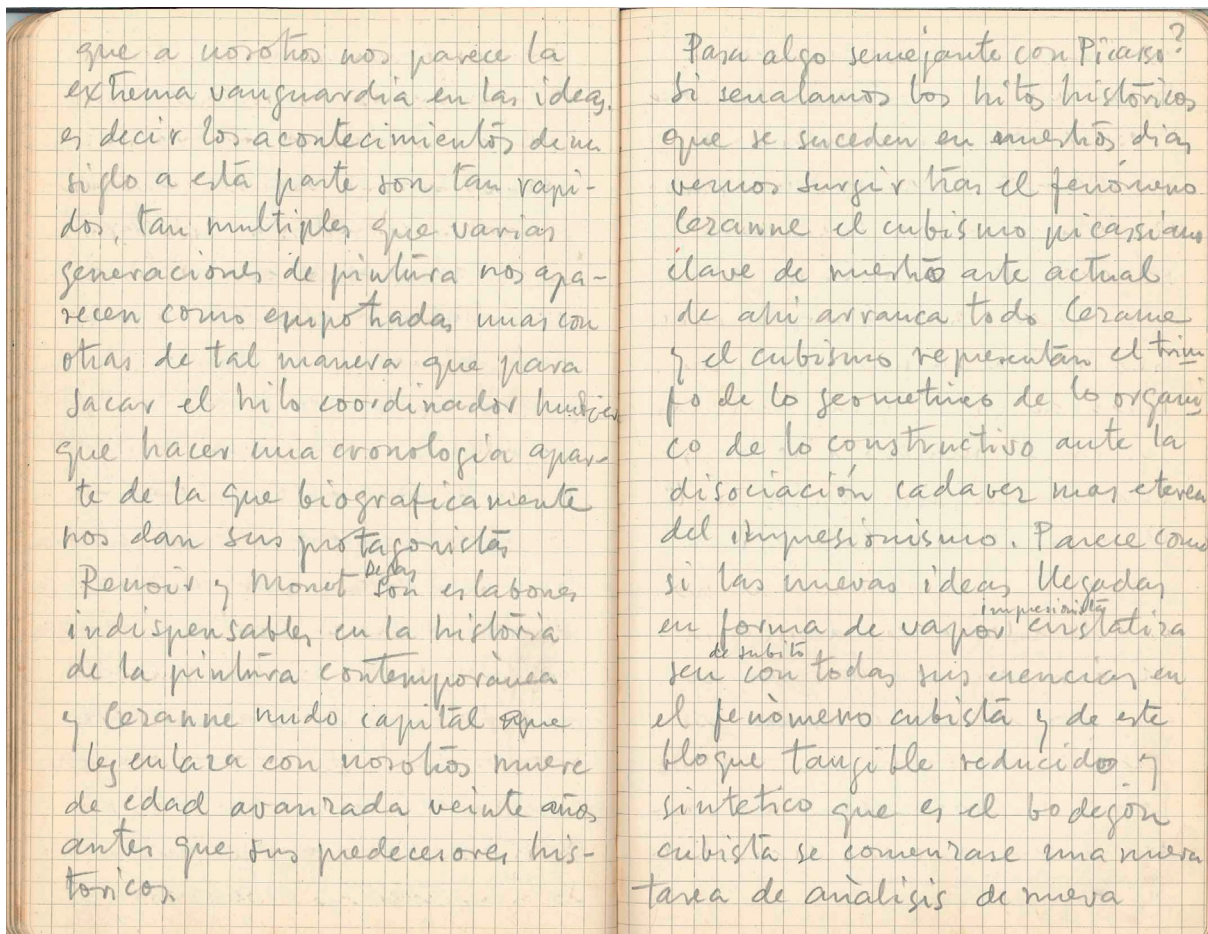 que a nosotros nos parece la
extrema vanguardia en las ideas.
es decir los acontecimientos de un
siglo a esta parte son tan rapi-
dos, tan multiples que varias
generaciones de pintura nos apa-
recen como empotradas unas con
otras de tal manera que para
sacar el hilo coordinador hubier
que hacer una cronologia apar-
te de la que biograficamente
nos dan sus protagonistas
Degas
Renoir y Monet son eslabones
indispensables en la història
de la pintura contemporànea
y Cezanne nudo capital que
les enlaza con nosotros muere
de edad avanzada veinte años
antes que sus predecesores his-
toricos.
Pasa algo semejante con Picasso?
Si senalamos los hitos històricos
que se suceden en nuestros dias
vemos surgir tras el fenómeno
Cezanne el cubismo picassiano
clave de nuestro arte actual
de ahi arranca todo Cezanne
y el cubismo representan el triun
fo de lo geometrico de lo organi
co de lo constructivo ante la
disociación cada vez mas eterea
del impresionismo. Parece como
si las nuevas ideas llegadas
impresionista
en forma de vapor cristaliza
de subito
sen con todas sus esencias en
el fenòmeno cubista y de este
bloque tangible reducido y
sintetico que es el bodegón
cubista se comenzase una nueva
tarea de anàlisis de nueva